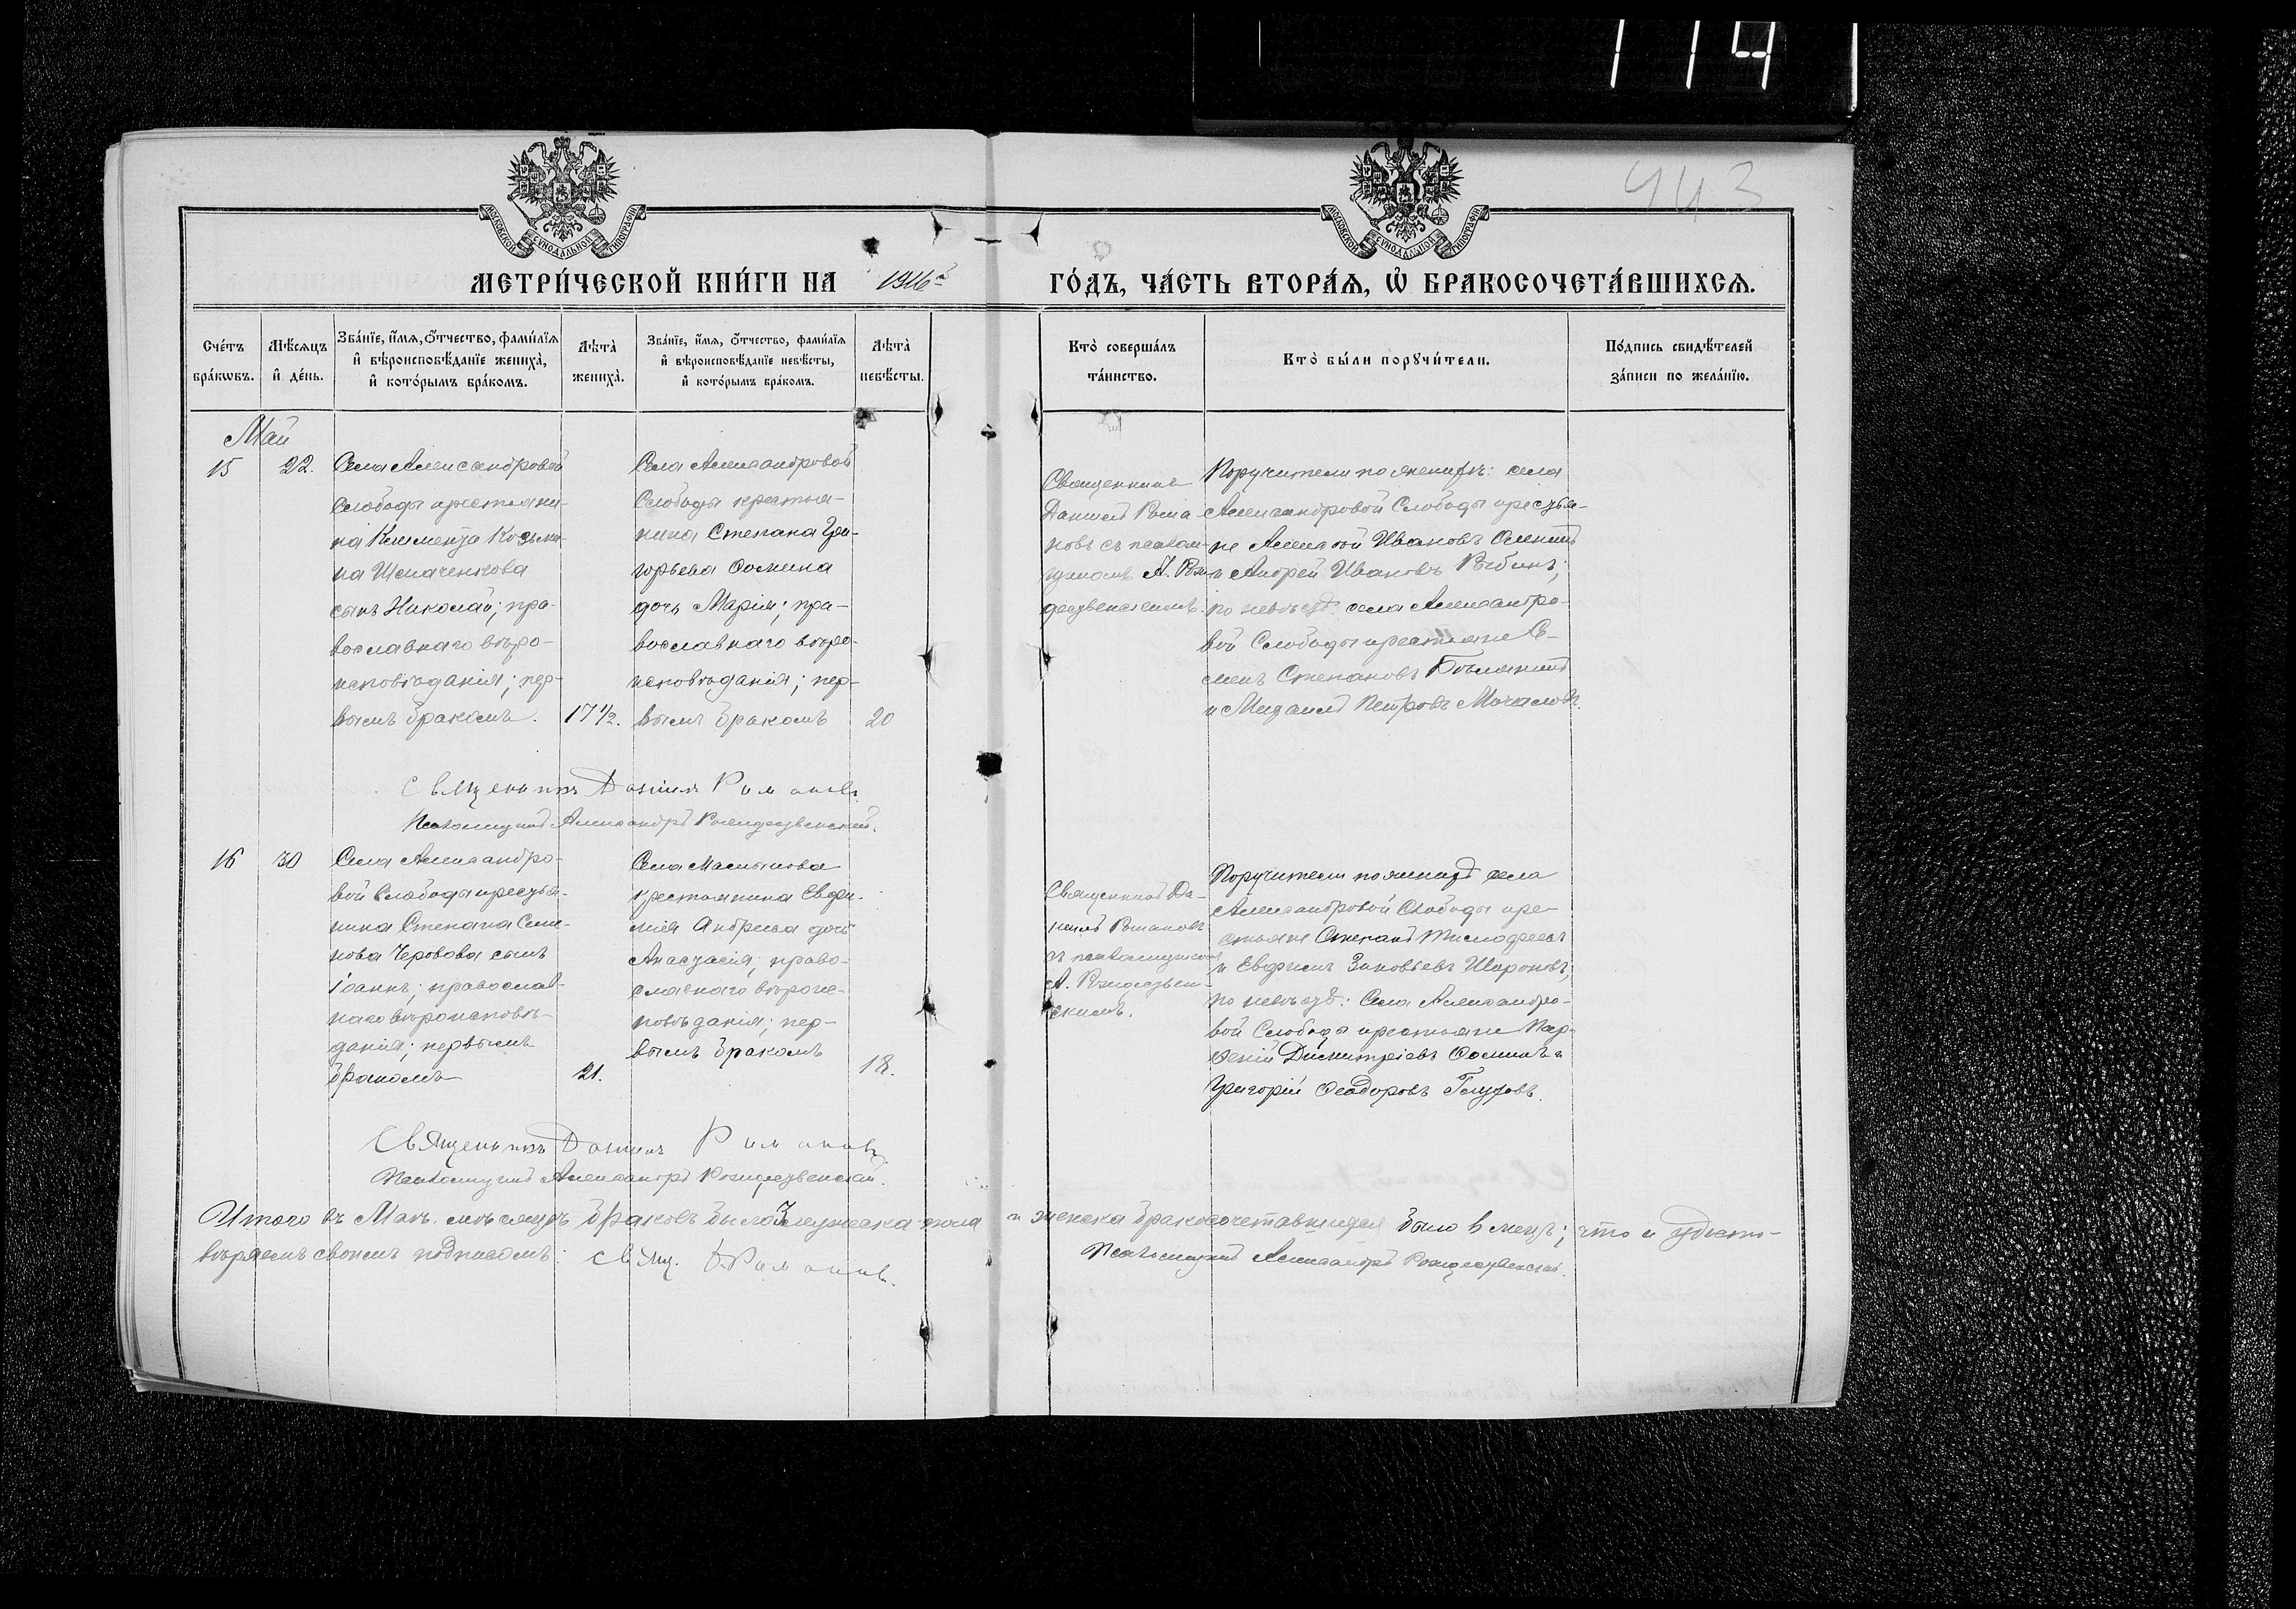 114
443
МОСКОВСКОЙ СУНОДАЛЬНОЙ ТИПОГРАФІИ
МОСКОВСКОЙ СУНОДАЛЬНОЙ ТИПОГРАФІИ
МЕТРИ́ЧЕСКОЙ КНИ́ГИ НА 1916 г.
ГО́ДЪ, ЧА́СТЬ ВТОРА́Я, Ѡ҆ БРАКОСОЧЕТА́ВШИХСѦ.
Сче́тъ
бра́кѡвъ.
Мѣ́сяцъ
и҆ де́нь.
Зва́нїе, и҆́мя, ѻ҆́тчество, фами́лїя
и҆ вѣроисповѣ́данїе жениха̀,
и҆ кото́рымъ бра́комъ.
Лѣта̀
жениха̀.
Зва́нїе, и҆́мя, ѻ҆́тчество, фами́лїя
и҆ вѣроисповѣ́данїе невѣ́сты,
и҆ кото́рымъ бра́комъ.
Лѣта̀
невѣ́сты.
Кто̀ соверша́лъ
та́инство.
Кто̀ бы́ли порꙋчи́тели.
По́дпись свидѣ́телей
за́писи по жела́нїю.
Май
15
22.
Села Александровой
Слободы крестьяни-
на Климента Козьми-
на
сынъ Николай; пра-
вославнаго вѣро-
исповѣданія; пер-
вымъ бракомъ.
17 1/2.
Села Александровой
Слободы крестья-
нина Степана Гри-
горьева Ѳомина
дочь Марія; пра-
вославнаго вѣро-
исповѣданія; пер-
вымъ бракомъ
20
Священникъ
Даніилъ Рома-
новъ съ псалом-
щикомъ А. Рож-
дественскимъ.
Поручители по женихѣ: села
Александровой Слободы крестья-
не Алексѣй Ивановъ
и Андрей Ивановъ Рыбинъ;
по невѣстѣ: села Александро-
вой Слободы крестьяне Се-
менъ Степановъ
и Михаилъ Петровъ Мочаловъ.
Священникъ Даніилъ Романовъ
Псаломщикъ Александръ Рождественскій.
16
30
Села Александро-
вой Слободы крестья-
нина Степана Семе-
нова сынъ
Іоаннъ; православ-
наго вѣроисповѣ-
данія; первымъ
бракомъ
21.
Села
крестьянина Евфи-
мія Андреева дочь
Анастасія; право-
славнаго вѣроис-
повѣданія; пер-
вымъ бракомъ
18.
Священникъ Да-
ніилъ Романовъ
съ псаломщикомъ
А. Рождествен-
скимъ.
Поручители по женихѣ села
Александровой Слободы кре-
стьяне Степанъ
и Евфимъ Зиновьевъ Шароновъ;
по невѣстѣ: Села Александро-
вой Слободы крестьяне Пар-
ѳеній Димитріевъ Ѳоминъ и
Григорій Ѳеодоровъ
Священникъ Даніилъ Романовъ
Псаломщикъ Александръ Рождественскій.
Итого въ Маѣ мѣсяцѣ браковъ было 3 мужеска пола и женска бракосочетавшихся было 6 лицъ; что и удосто-
вѣряемъ своимъ подписомъ: Свящ. Д. Романовъ.
Псаломщикъ Александръ Рождественскій.